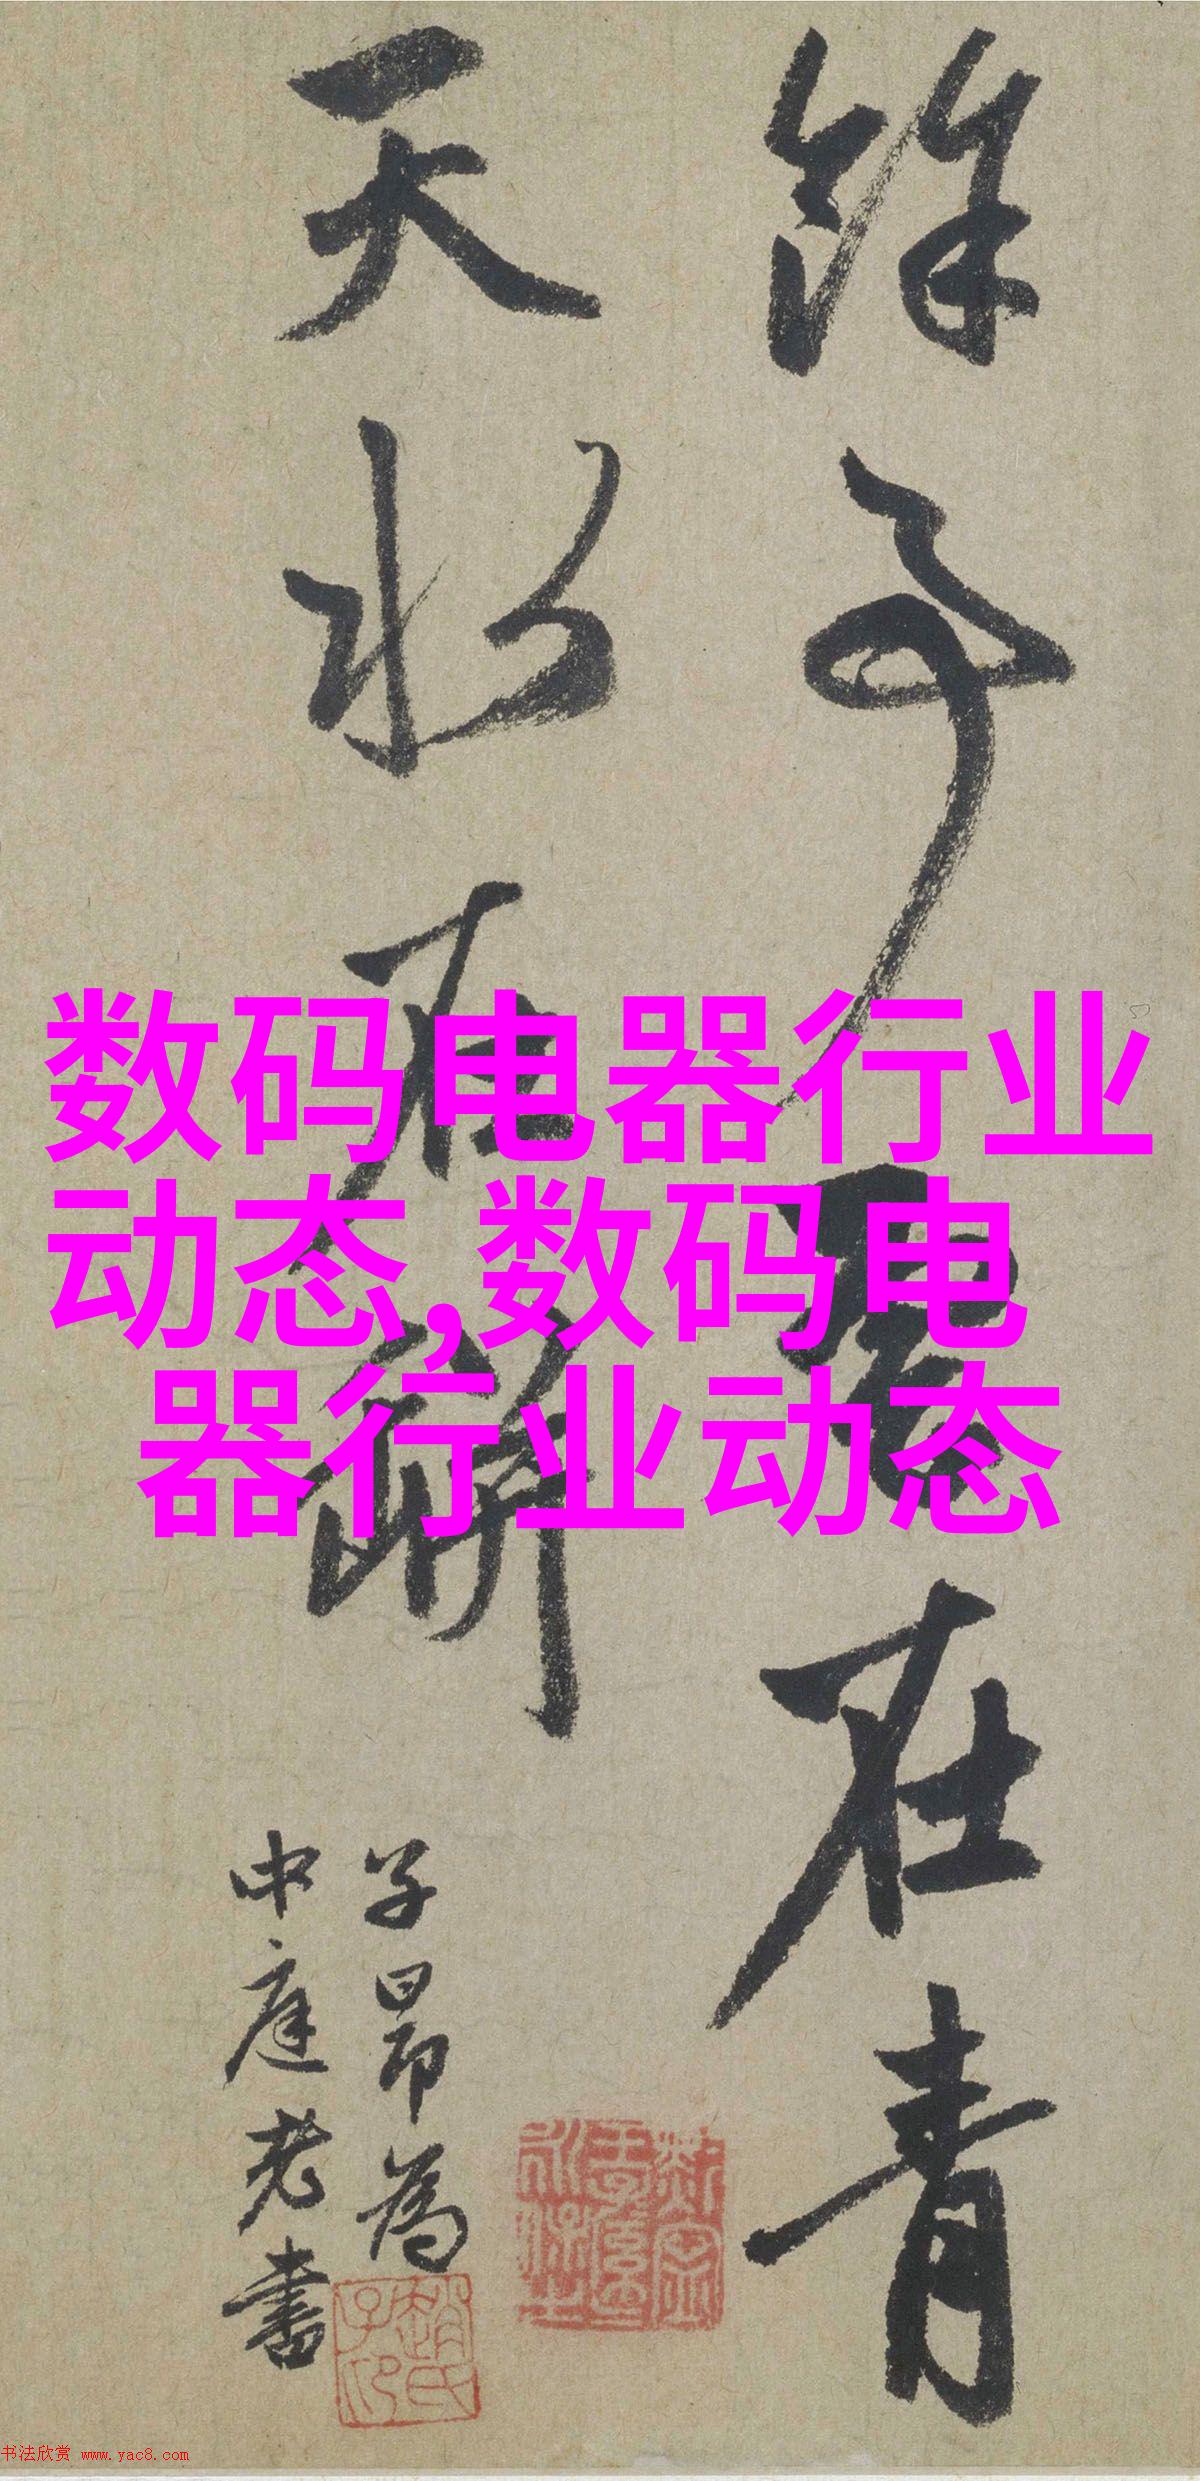 餘事
在青
天水在
子昂為
中庭老書
趙氏子昂
数码电器行业
动态,数码电
器行业动态
书法欣赏 www.yac8.com